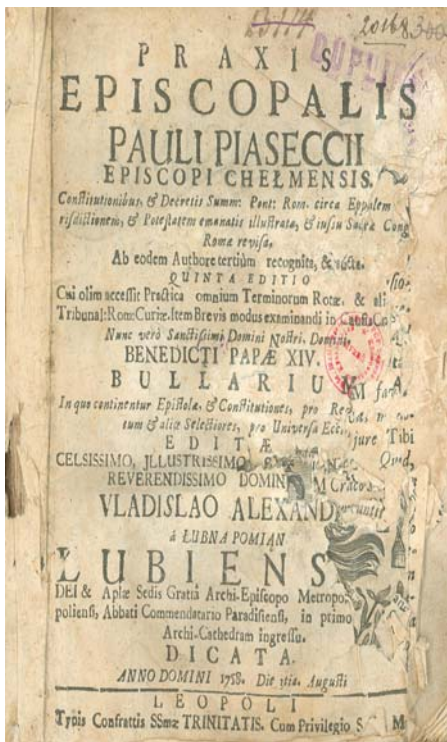 20168
PRAXIS
EPISCOPALIS
PAULI PIASECCII
EPISCOPI CHEŁMENSIS.
Constitutionibus, & Decretis Summ: Pont: Rom. circa Eppalem
risdictionem, & Potestatem emanatis illustrata, & iussu Sacræ Cong
Romæ revisa,
Ab eodem Authore tertiùm recognita, &
QUINTA EDITIO
Cui olim accessit Practica omnium Terminorum Rotæ, & ali
Tribunal: Rom: Curiæ. Item Brevis modus examinandi in
Nunc verò Sanctissimi Domini Nostri, Domini,
BENEDICTI PAPÆ XIV.
BULLARIUM
In quo continentur Epistolæ, & Constitutiones, pro Re
tum & aliæ Selectiores, pro Universa Ecc
jure Tibi
EDITÆ
CELSISSIMO, JLLUSTRISSIMO,
REVERENDISSIMO DOMIN
VLADISLAO ALEXAND
á ŁUBNA POMIAN
LUBIENS
DEI & Aplæ Sedis Gratiâ Archi-Episcopo Metropo
poliensi, Abbati Commendatario Paradisiensi, in primo
Archi-Cathedram ingressu.
DICATA.
ANNO DOMINI 1758. Die 3tia. Augusti
LEOPOLI
Typis Confrattis SSmæ TRINITATIS. Cum Privilegio S M